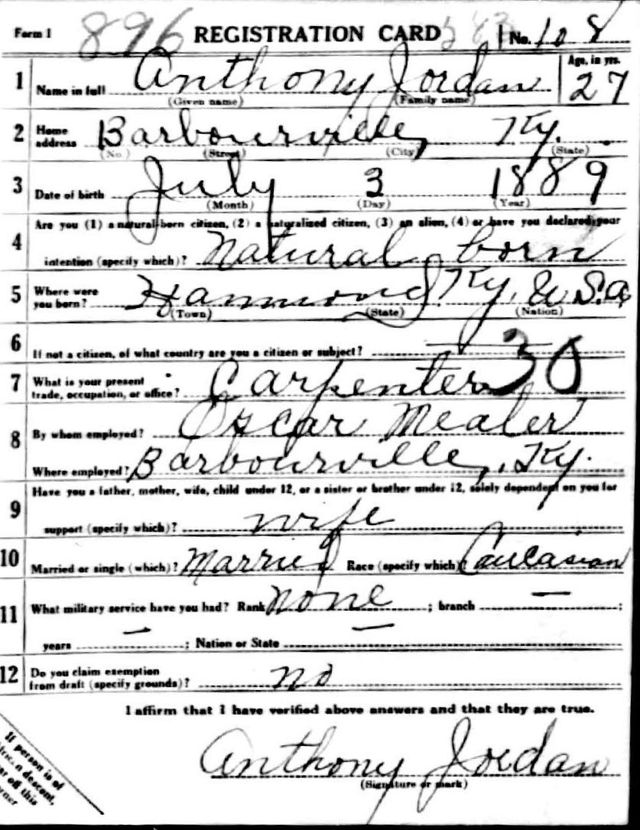 Form 1 896 REGISTRATION CARD 583 No. 108
1 Name in full Anthony Jordan Age, in yrs. 27
(Given name) (Family name)
2 Home address Barbourville, Ky.
(No.) (Street) (City) (State)
3 Date of birth July 3 1889
(Month) (Day) (Year)
Are you (1) a natural-born citizen, (2) a naturalized citizen, (3) an alien, (4) or have you declared your
4 intention (specify which)? Natural born
5 Where were you born? Hammond Ky, U.S.a,
(Town) (State) (Nation)
6 If not a citizen, of what country are you a citizen or subject?
7 What is your present trade, occupation, or office? Carpenter 30
8 By whom employed? Oscar Mealer
Where employed? Barbourville, Ky.
9 Have you a father, mother, wife, child under 12, or a sister or brother under 12, solely dependent on you for
support (specify which)? wife
10 Married or single (which)? Married Race (specify which) Caucasian
11 What military service have you had? Rank None ; branch — ;
years — ; Nation or State —
12 Do you claim exemption from draft (specify grounds)? no
I affirm that I have verified above answers and that they are true.
Anthony Jordan
(Signature or mark)
If person is of
n descent,
ar off this
rner